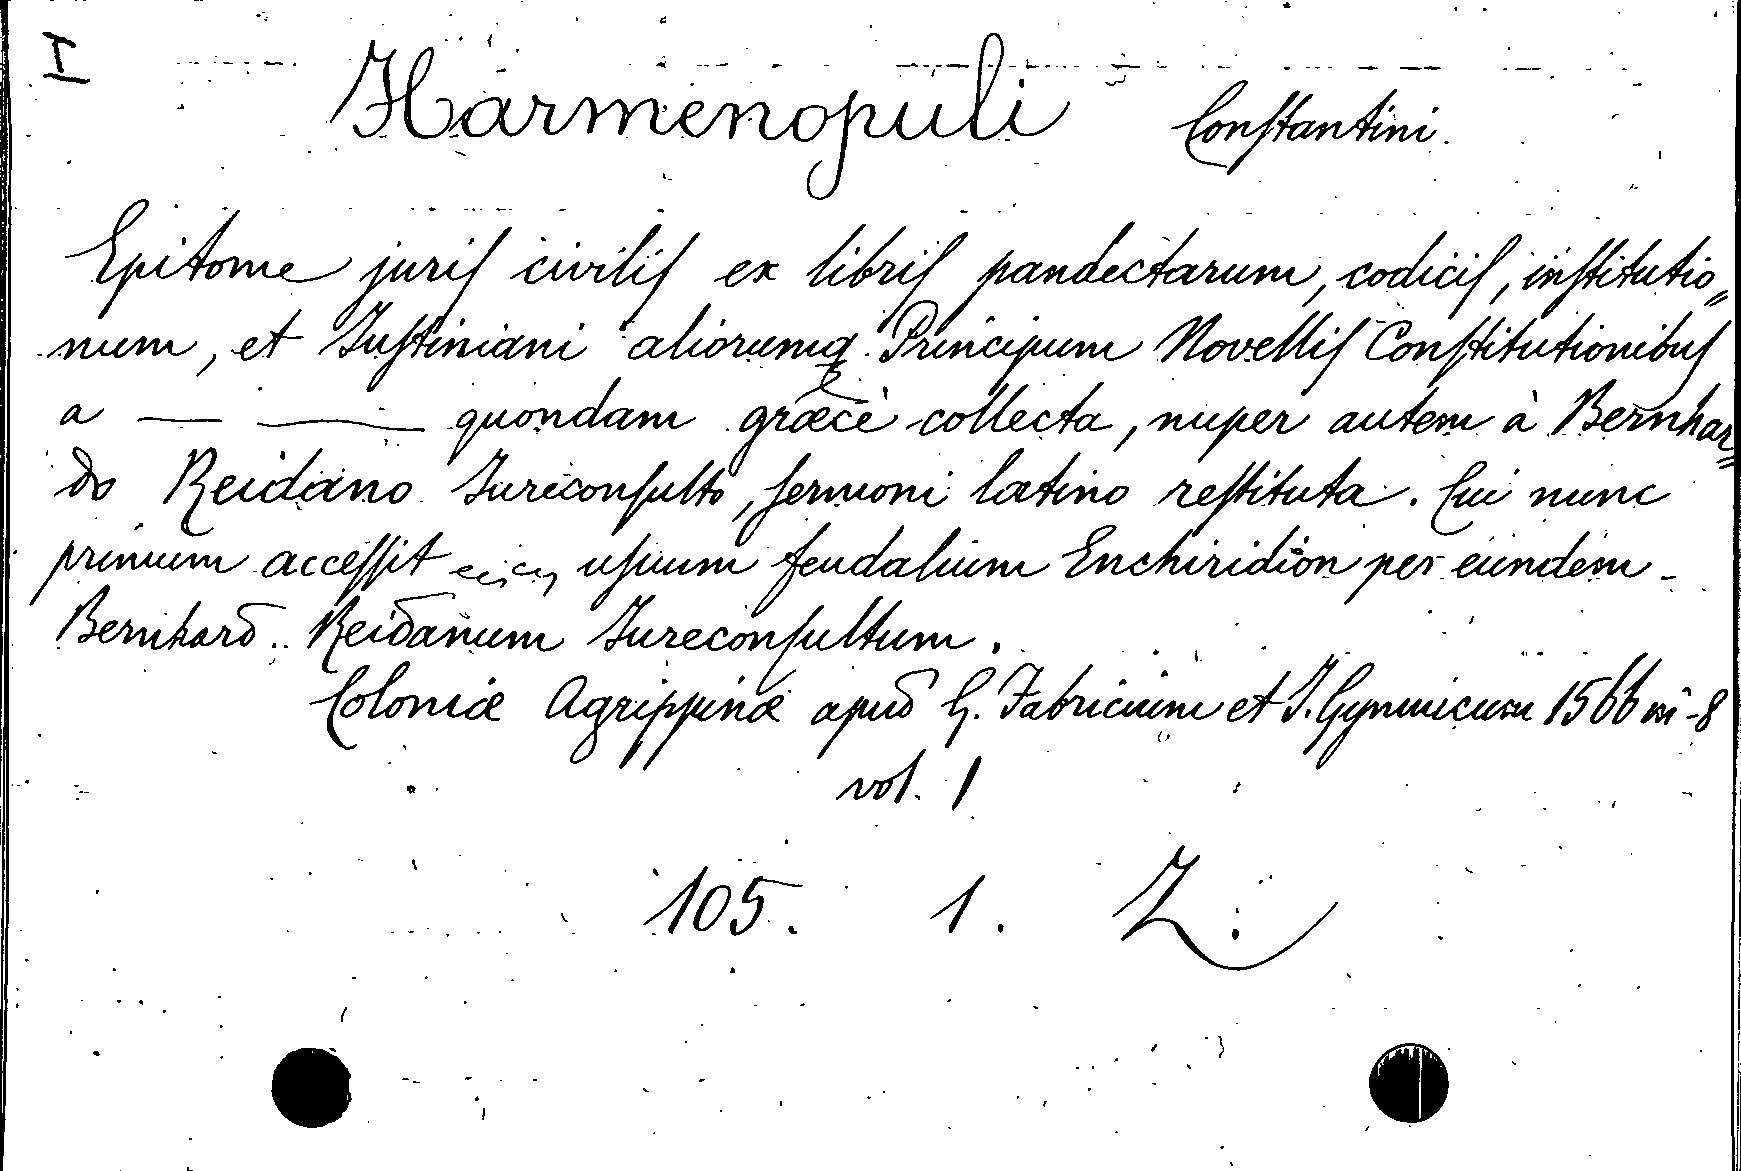 I
Harmenopuli Constantini.
Epitome juris civilis ex libris pandectarum, codicis, institutio„
num, et Justiniani aliorumq Principum Novellis Constitutionibus
a — — quondam græcè collecta, nuper autem à Bernhar„
do Reidano Jureconsulto, sermoni latino restituta. Cui nunc
primum accessit usuum feudalium Enchiridion per eundem
Bernhard.. Reidanum Jureconsultum.
Coloniæ Agrippinæ apud G. Fabricium et J. Gymnicum 1566 in-8
vol. 1
105. 1. Z.